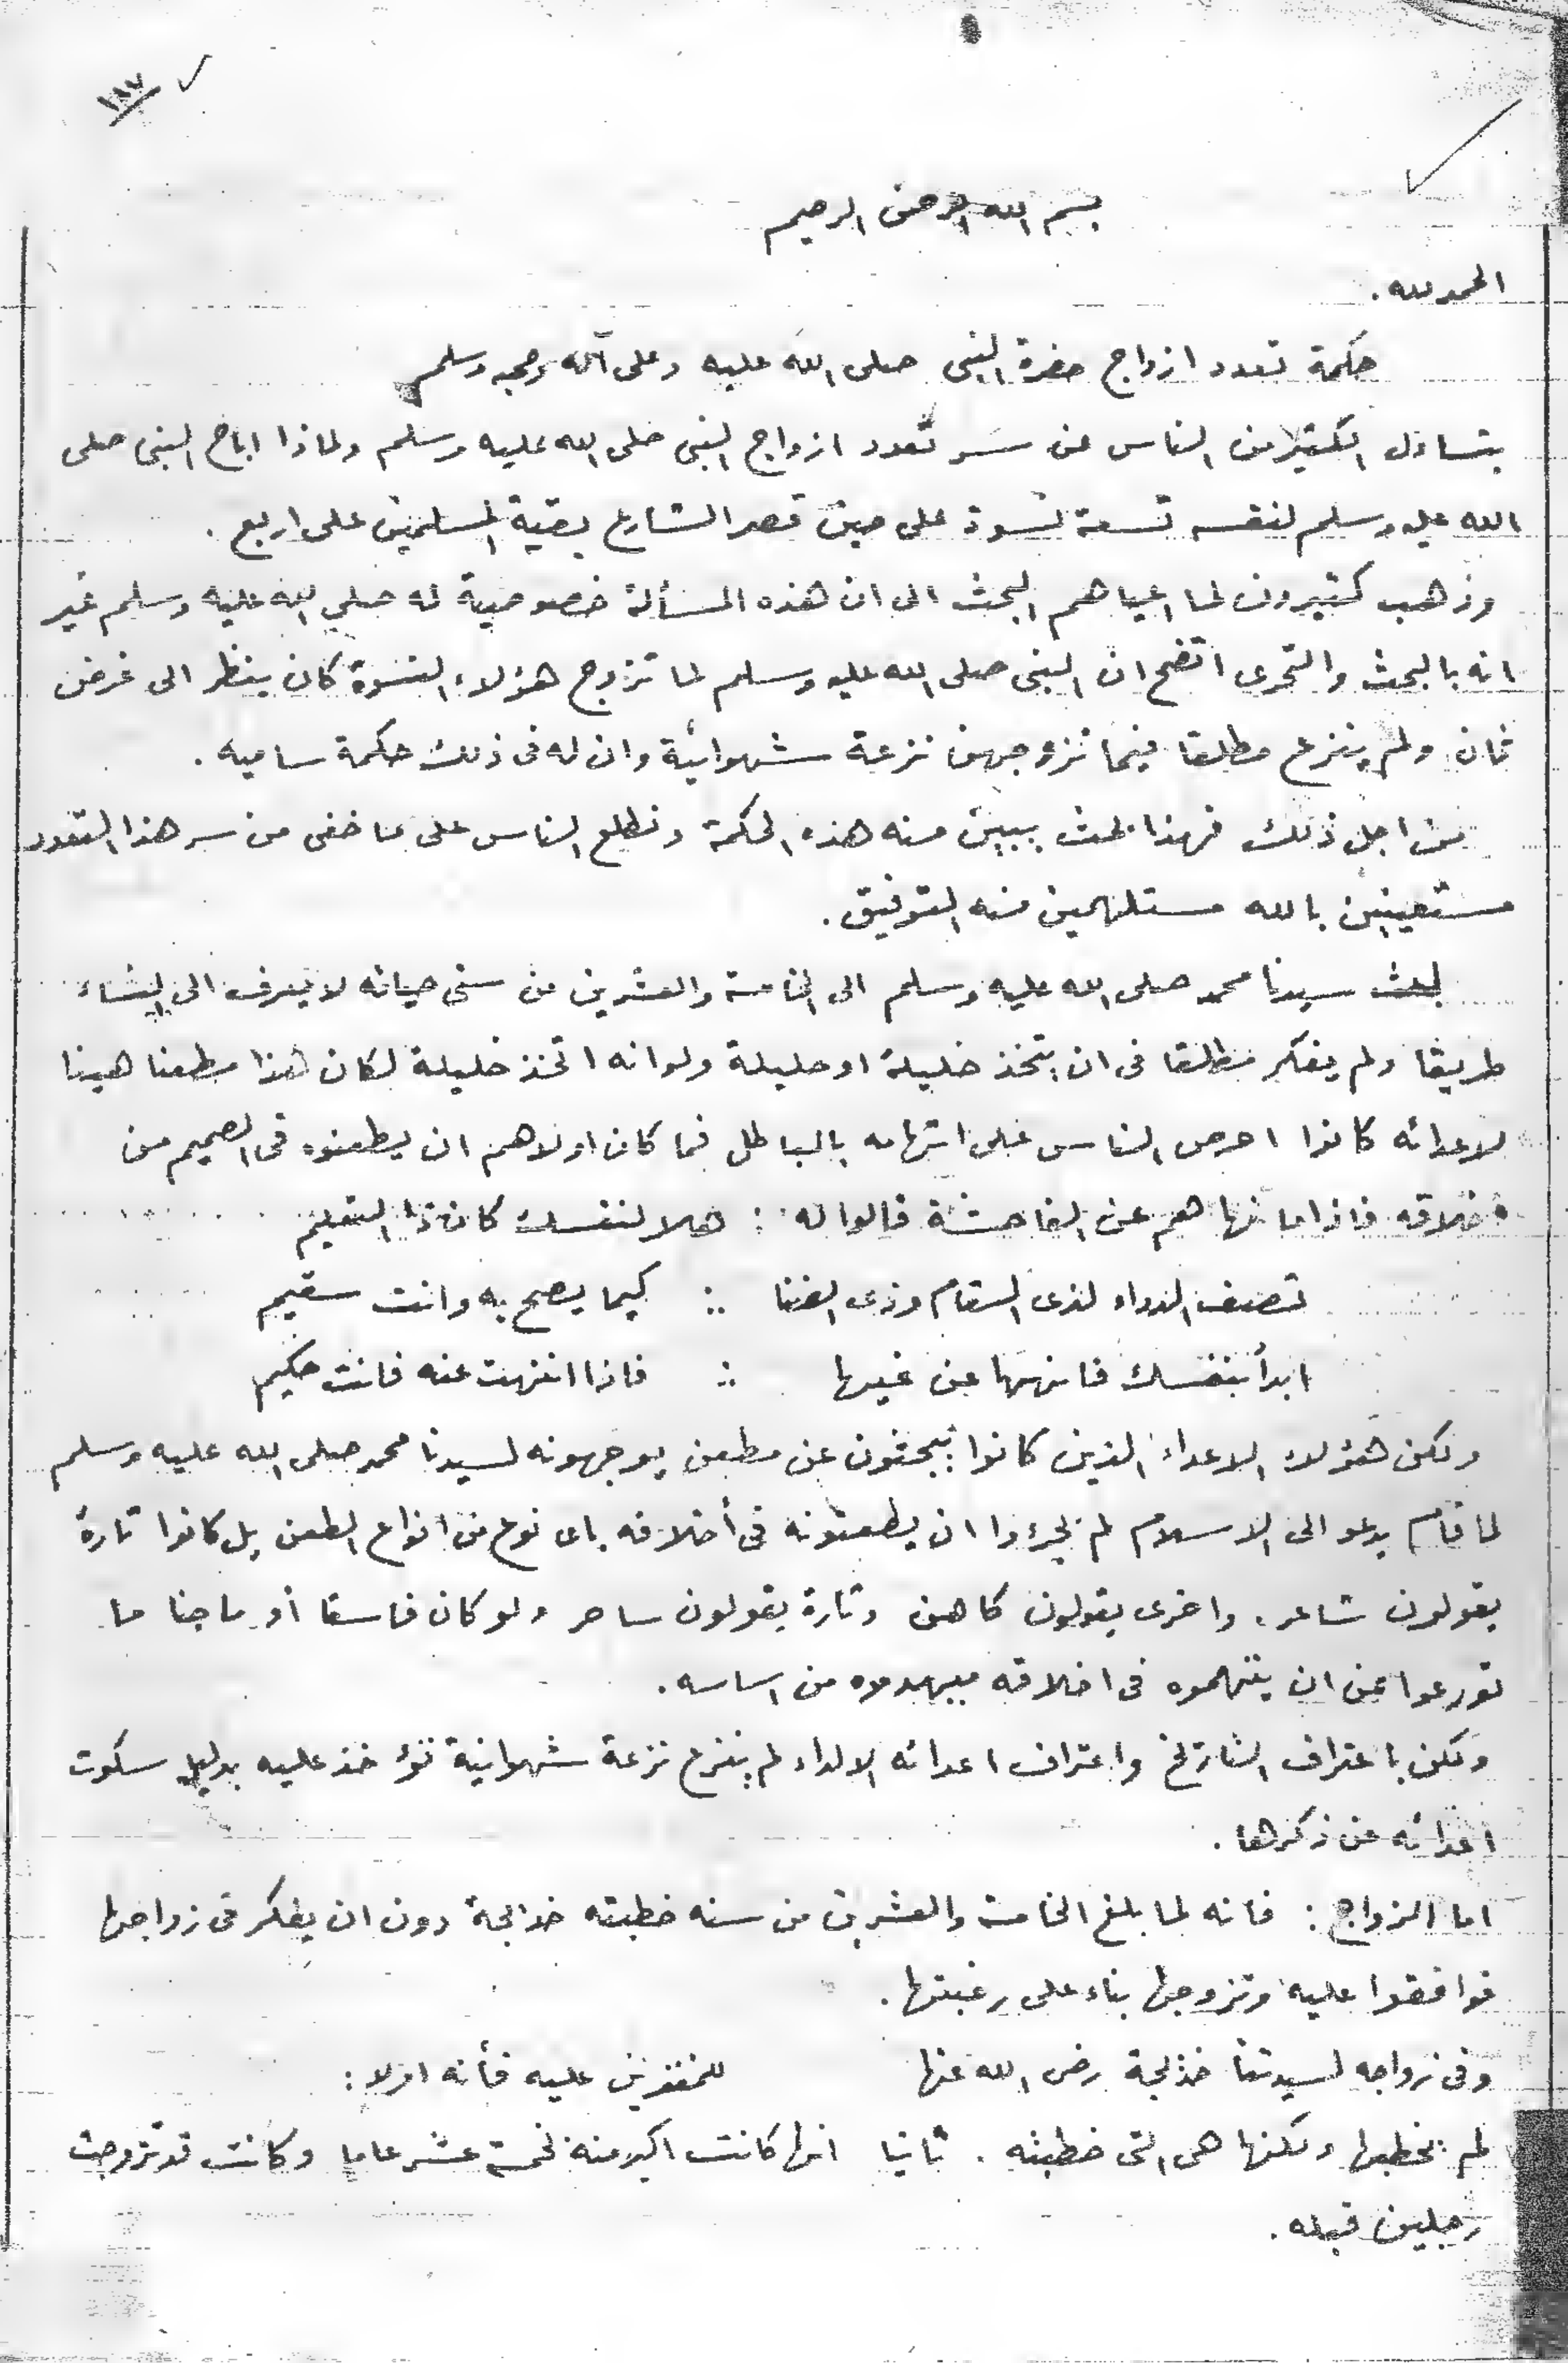 ١٨٧
بسم الله الرحمن الرحيم
الحمد لله .
حكمة تعدد ازواج حضرة النبى صلى الله عليه وعلى آله وصحبه وسلم
يتساءل الكثير من الناس عن سر تعدد ازواج النبى صلى الله عليه وسلم ولماذا اباح النبى صلى
الله عليه وسلم لنفسه تسعة نسوة على حين قصر الشارع بقية المسلمين على اربع .
وذهب كثيرون لما اعياهم البحث الى ان هذه المسألة خصوصية له صلى الله عليه وسلم غير
انه بالبحث والتحرى اتضح ان النبى صلى الله عليه وسلم لما تزوج هؤلاء النسوة كان ينظر الى غرض
ثمان ولم ينزع مطلقا فيما تزوجهن نزعة شهوائية وان له فى ذلك حكمة ساميه .
من اجل ذلك فهذا بحث يبين منه هذه الحكمة ونطلع الناس على ما خفى من سر هذا التعدد
مستعينين بالله مستلهمين منه التوفيق .
لبث سيدنا محمد صلى الله عليه وسلم الى الخامسة والعشرين من سنى حياته لا يعرف الى النساء
طريقا ولم يفكر مطلقا فى ان يتخذ خليلة او حليلة ولو انه اتخذ خليلة لكان هذا مطعنا هينا
لاعدائه كانوا احرص الناس على اتهامه بالباطل فما كان اولاهم ان يطعنوه فى الصميم من
أخلاقه فاذا ما نهاهم عن الفاحشة قالوا له : هلا لنفسك كان ذا التعليم
تصف الدواء لذى السقام وذى الضنا ∴ كيما يصح به وانت سقيم
ابدأ بنفسك فانهها عن غيها ∴ فاذا انتهت عنه فانت حكيم
ولكن هؤلاء الاعداء الذين كانوا يبحثون عن مطعن يوجهونه لسيدنا محمد صلى الله عليه وسلم
لما قام يدعو الى الاسلام لم يجرءوا ان يطعنونه فى أخلاقه باى نوع من انواع الطعن بل كانوا تارة
يقولون شاعر . واخرى يقولون كاهن وتارة يقولون ساحر ولو كان فاسقا أو ماجنا ما
تورعوا عن ان يتهموه فى اخلاقه فيهدموه من اساسه .
ولكن باعتراف التاريخ واعتراف اعدائه الالداء لم ينزع نزعة شهوانية تؤخذ عليه بدليل سكوت
اعدائه عن ذكرها .
اما الزواج : فانه لما بلغ الخامسة والعشرين من سنه خطبته خديجة دون ان يفكر فى زواجها
فوافقوا عليه وتزوجها بناء على رغبتها .
وفى زواجه لسيدتنا خديجة رضى الله عنها للمفترين عليه فأنه اولا :
لم يخطبها ولكنها هى التى خطبته . ثانيا انها كانت اكبر منه بخمسة عشر عاما وكانت قد تزوجت
رجلين قبله .